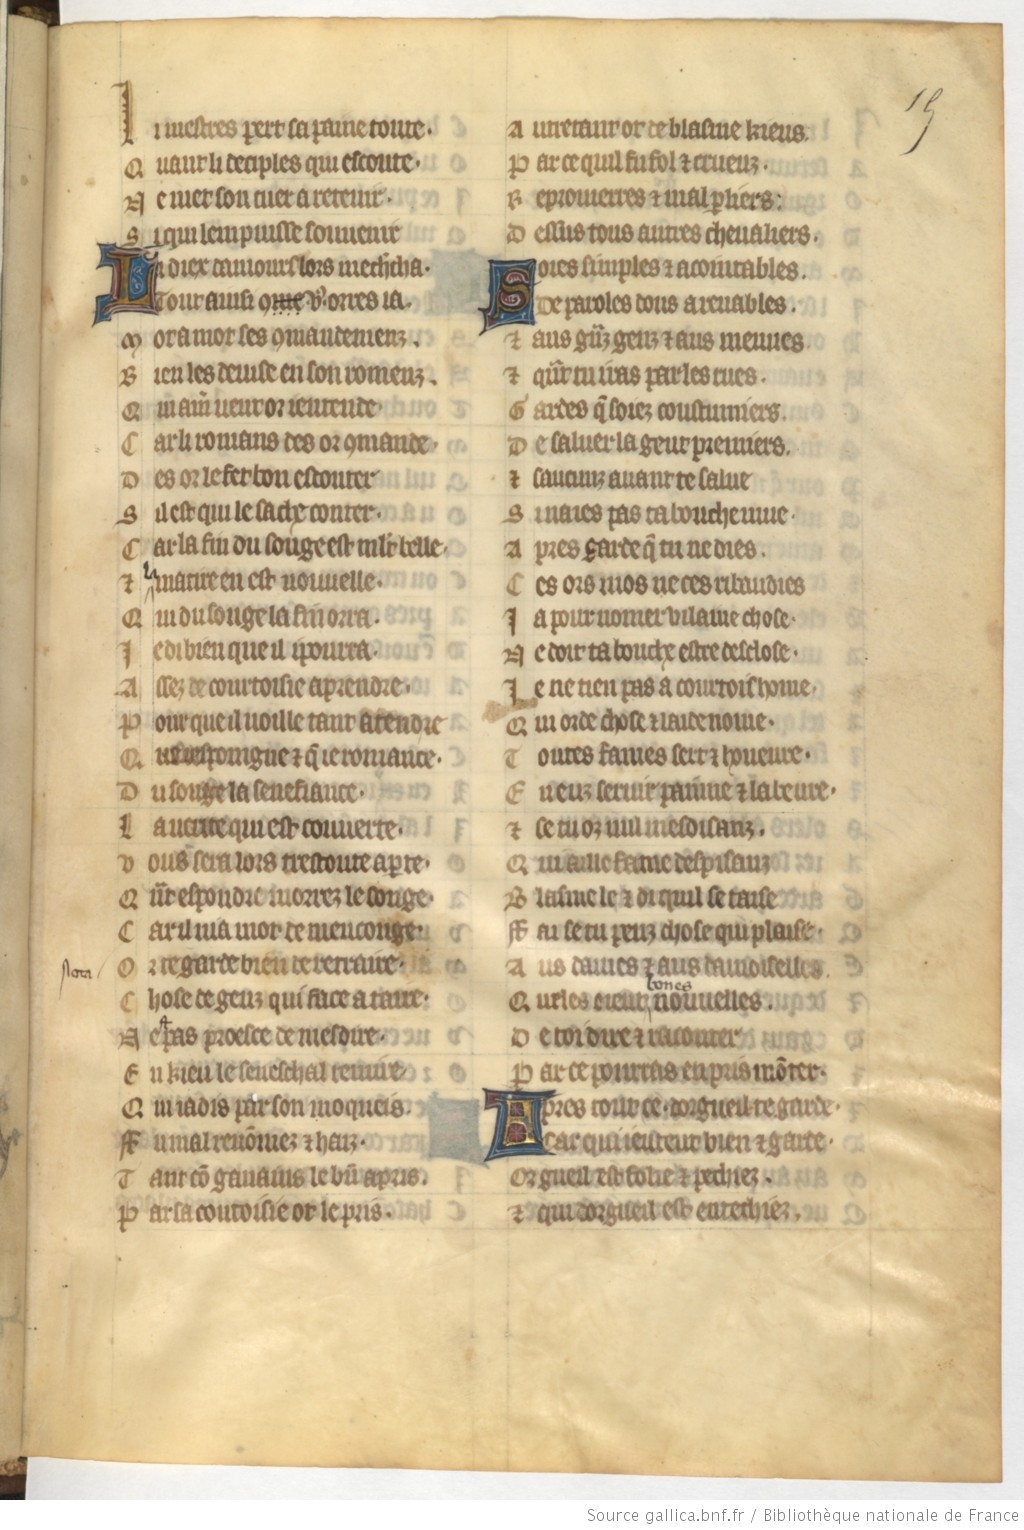 15
Li mestres pert sa paine toute.
Quant li deciples qui escoute.
Ne met son cuer a retenir.
Si qui lempuisse souvenir
Li diex damours lors mechcha.
Tout ausi 9me vo9 orres ia.
Mor amor ses 9mandemenz.
Bien les devise en son romenz.
Qui amer veut or i entende.
Car li romans des or 9mande.
Des or le fet bon escouter
Sil est qui le sache conter.
Car la fin du songe est mlt belle.
⁊ la matire en est nouvelle.
Qui du songe la fin orra.
Je di bien que il i pourra.
Assez de courtoisie aprendre.
Pour que il voille tant atendre
Que iespoingne ⁊ q̃ ie romance.
Du songe la senefiance.
La verite qui est couverte.
Vous sera lors trestoute aperte.
Qñt espondre morrez le songe.
Car il nia mot de menconge.
Or te garde bien de retraire.
Chose de genz qui face a taire.
Nest pas proesce de mesdire.
En kieu le seneschal te mire
Qui iadis par son moqueis.
Fu mal renõmez ⁊ haiz.
Tant cõ gauains le bñ apris.
Par sa coutoisie ot le pris.
Autretant ot de blasme kieus.
Par ce quil fu fol ⁊ crueuz.
Reprouierres ⁊ mal pliers:
Dessus tous autres chevaliers.
Soies simples ⁊ acointables.
De paroles dous a renables.
⁊ aus gñz genz ⁊ aus menues
⁊ qñt tu iras par les rues.
Gardes q̃ soiez coustumiers.
De saluer la gent premiers.
⁊ saucunz avant te salue
Si naies pas ta bouche mue.
Apres garde q̃ tu ne dies.
Ces ors mos ne ces ribaudies
Ja pour nomer vilaine chose.
Ne doit ta bouche estre desclose.
Je ne tien pas a courtois home.
Qui orde chose ⁊ laide nome.
Toutes fames sert ⁊ honeure.
Eneuz servir painne ⁊ labeure.
⁊ se tu oz nul mesdisanz.
Qui aille fame despisanz
Blasme le ⁊ di quil se taise
Fai se tu peuz chose qui plaise.
Aus dames ⁊ aus damoiselles.
Qurles oient bones nouvelles.
De toi dire ⁊ raconter
Par ce pourras en pris mõter.
Apres tout ce. dorgueil te garde.
Car qui ientent bien ⁊ garde.
Orgueil est folie ⁊ pechiez.
⁊ qui dorgueil est entechiez.
Source gallica.bnf.fr / Bibliothèque nationale de France